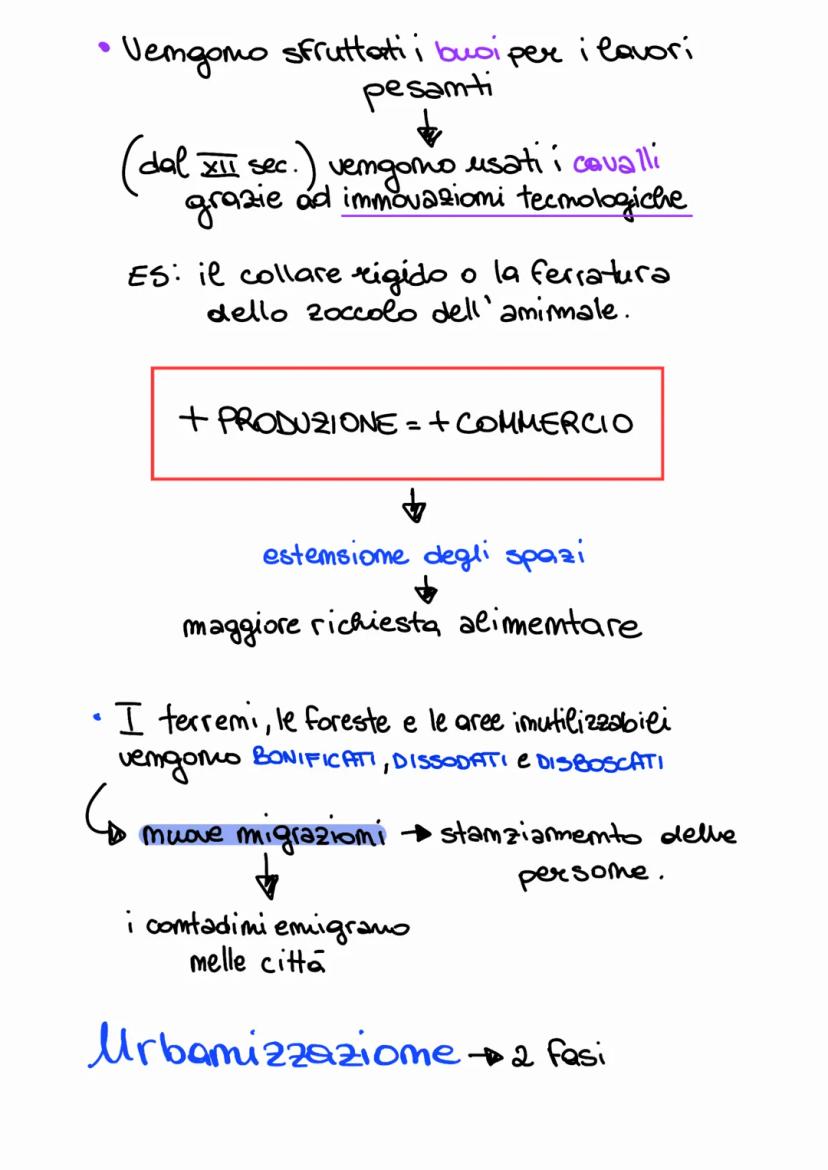 • Vengono sfruttati i buoi per i lavori
pesanti
↓
(dal XII sec.) vengono usati i cavalli
grazie ad innovazioni tecnologiche
ES: il collare rigido o la ferratura
dello zoccolo dell'animale.
+ PRODUZIONE = + COMMERCIO
↓
estensione degli spazi
↓
maggiore richiesta alimentare
• I terreni, le foreste e le aree inutilizzabili
vengono BONIFICATI, DISSODATI e DISBOSCATI
→ nuove migrazioni → stanziamento delle
persone.
↓
i contadini emigrano
nelle città
Urbanizzazione → 2 fasi